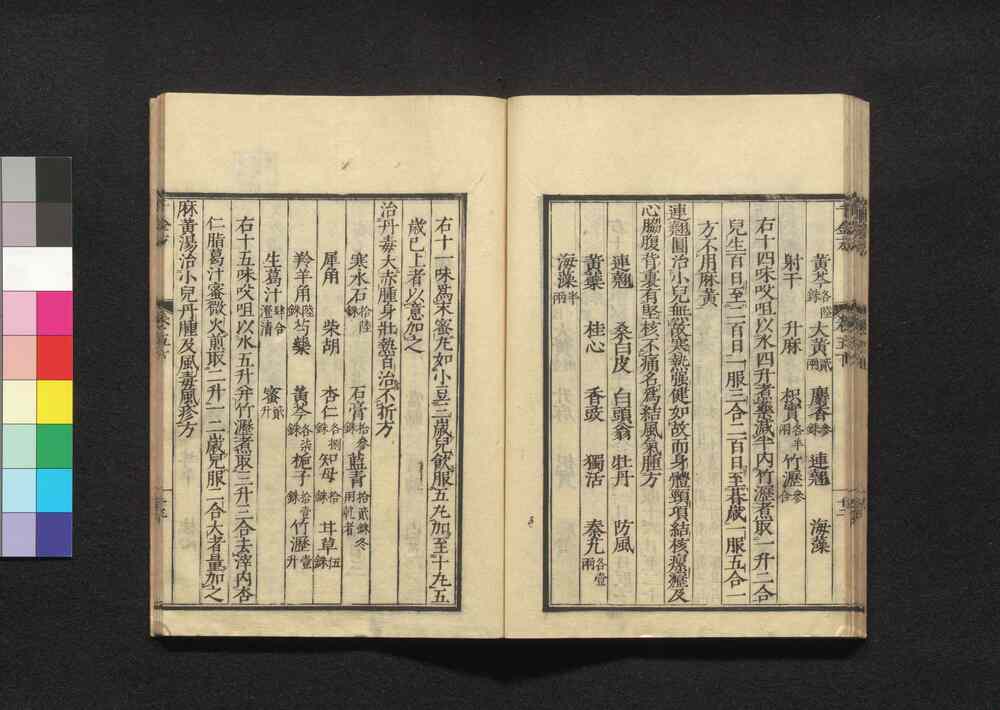 黃芩各陸銖 大黃貳兩 麝香參銖 連翹 海藻
射干 升麻 枳實各半兩 竹瀝參合
右十四味㕮咀以水四升煮藥減半內竹瀝煮取一升二合
兒生百日至二百日一服三合二百日至朞歲一服五合一
方不用麻黃
連翹圓治小兒無故寒熱強健如故而身體頸項結核瘰癧及
心脇腹背裏有堅核不痛名爲結風氣腫方
連翹 桑白皮 白頭翁 牡丹 防風
黃蘗 桂心 香豉 獨活 秦艽各壹兩
海藻半兩
右十一味爲末蜜丸如小豆三歲兒飲服五丸加至十丸五
歲已上者以意加之
治丹毒大赤腫身壯熱百治不折方
寒水石拾陸銖 石膏拾參銖 藍青拾貳銖冬用乾者
犀角 柴胡 杏仁各捌銖 知母拾銖 甘草伍銖
羚羊角陸銖 芍藥 黃芩各柒銖 梔子拾壹銖 竹瀝壹升
生葛汁肆合澄清 蜜貳升
右十五味㕮咀以水五升幷竹瀝煮取三升三合去滓內杏
仁脂葛汁蜜微火煎取二升一二歲兒服二合大者量加之
麻黃湯治小兒丹腫及風毒風疹方